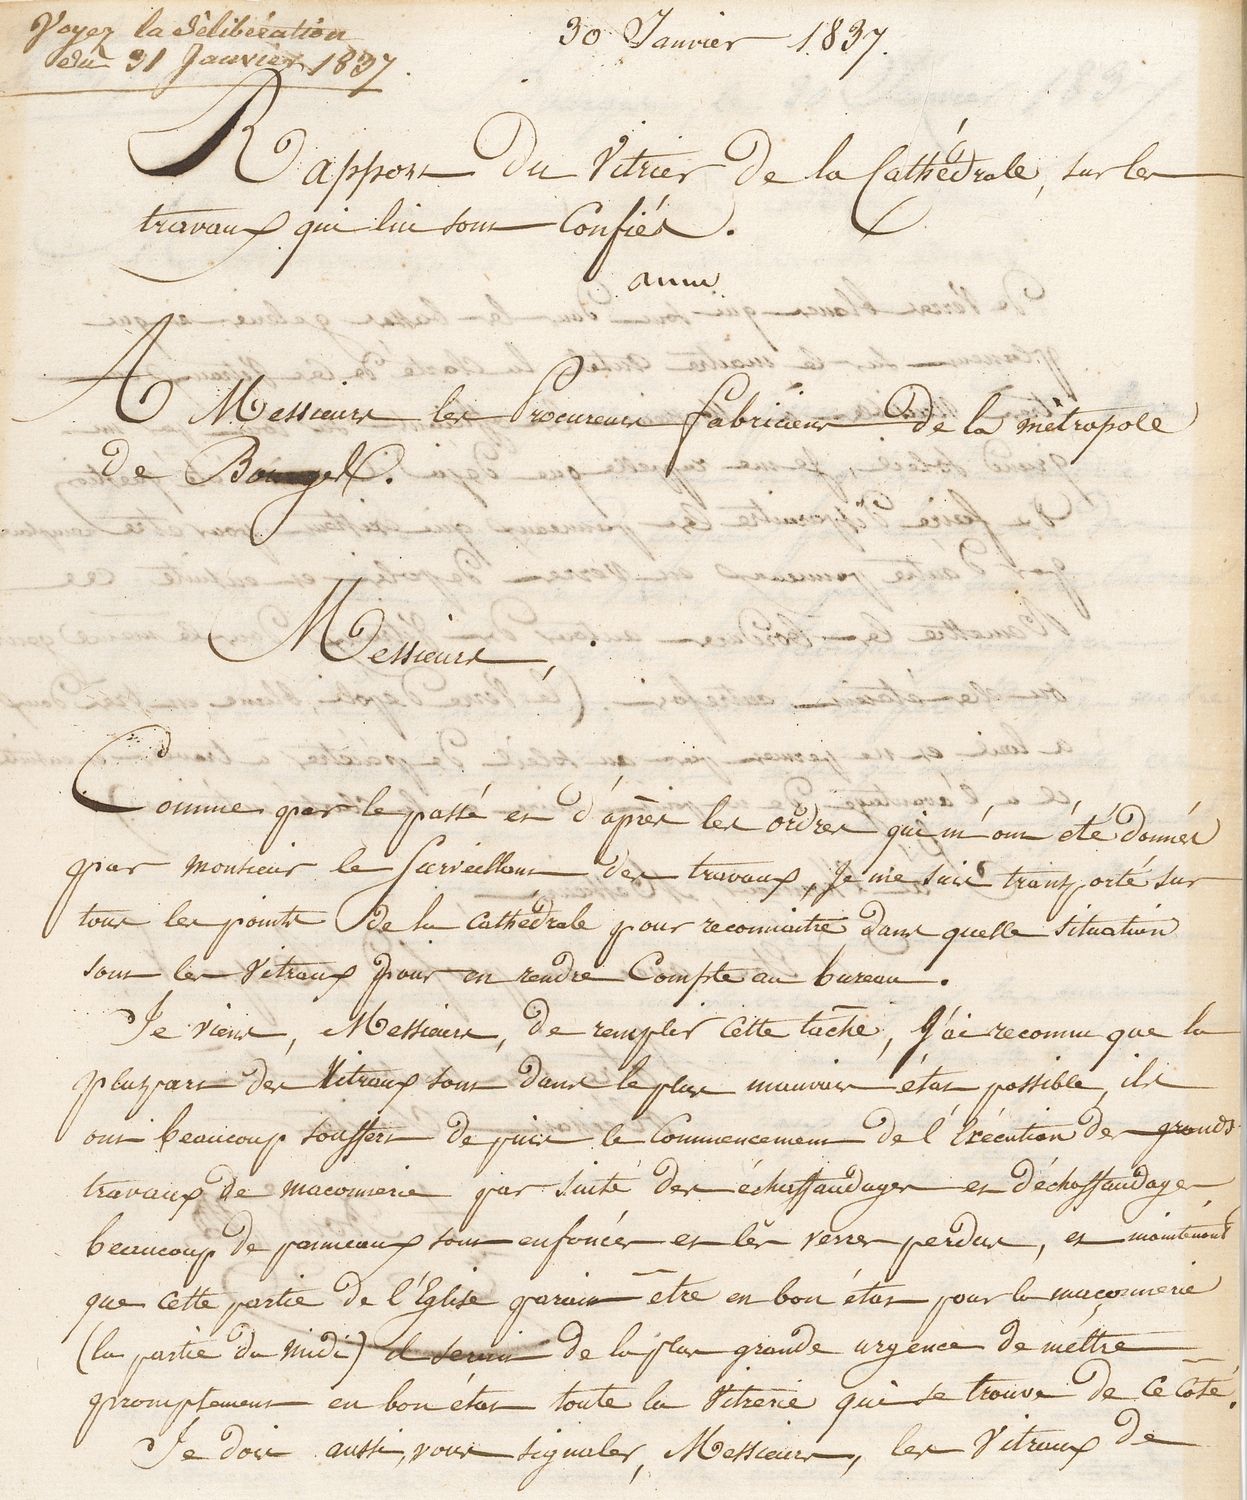 Voyez la délibération
du 31 Janvier 1837.
30 Janvier 1837.
Rapport du Vitrier de la Cathédrale, sur les
travaux qui lui sont Confiés.
A Messieurs les Procureurs fabriciens de la métropole
de Bourges.
Messieurs,
Comme par le passé et d'après les ordres qui m'ont été donnés
par monsieur le Surveillant des travaux, Je me suis transporté sur
tous les points de la Cathédrale pour reconnaitre dans quelle situation
sont les Vitraux pour en rendre Compte au bureau.
Je viens, Messieurs, de remplir cette tache, J'ai reconnu que la
pluspart des Vitraux sont dans le plus mauvais état possible, ils
ont beaucoup souffert depuis le Commencement de l'Exécution des grands
travaux de maconnerie par suite des échaffaudages et déchaffaudages
beaucoup de panneaux sont enfoncés et les verres perdus, et maintenant
que cette partie de l'Eglise parait être en bon état pour la maçonnerie
(la partie du midi) il serait de la plus grande urgence de mettre
promptement en bon état toute la Vitrerie qui se trouve de ce côté.
Je dois aussi, vous signaler, Messieurs, les Vitraux de